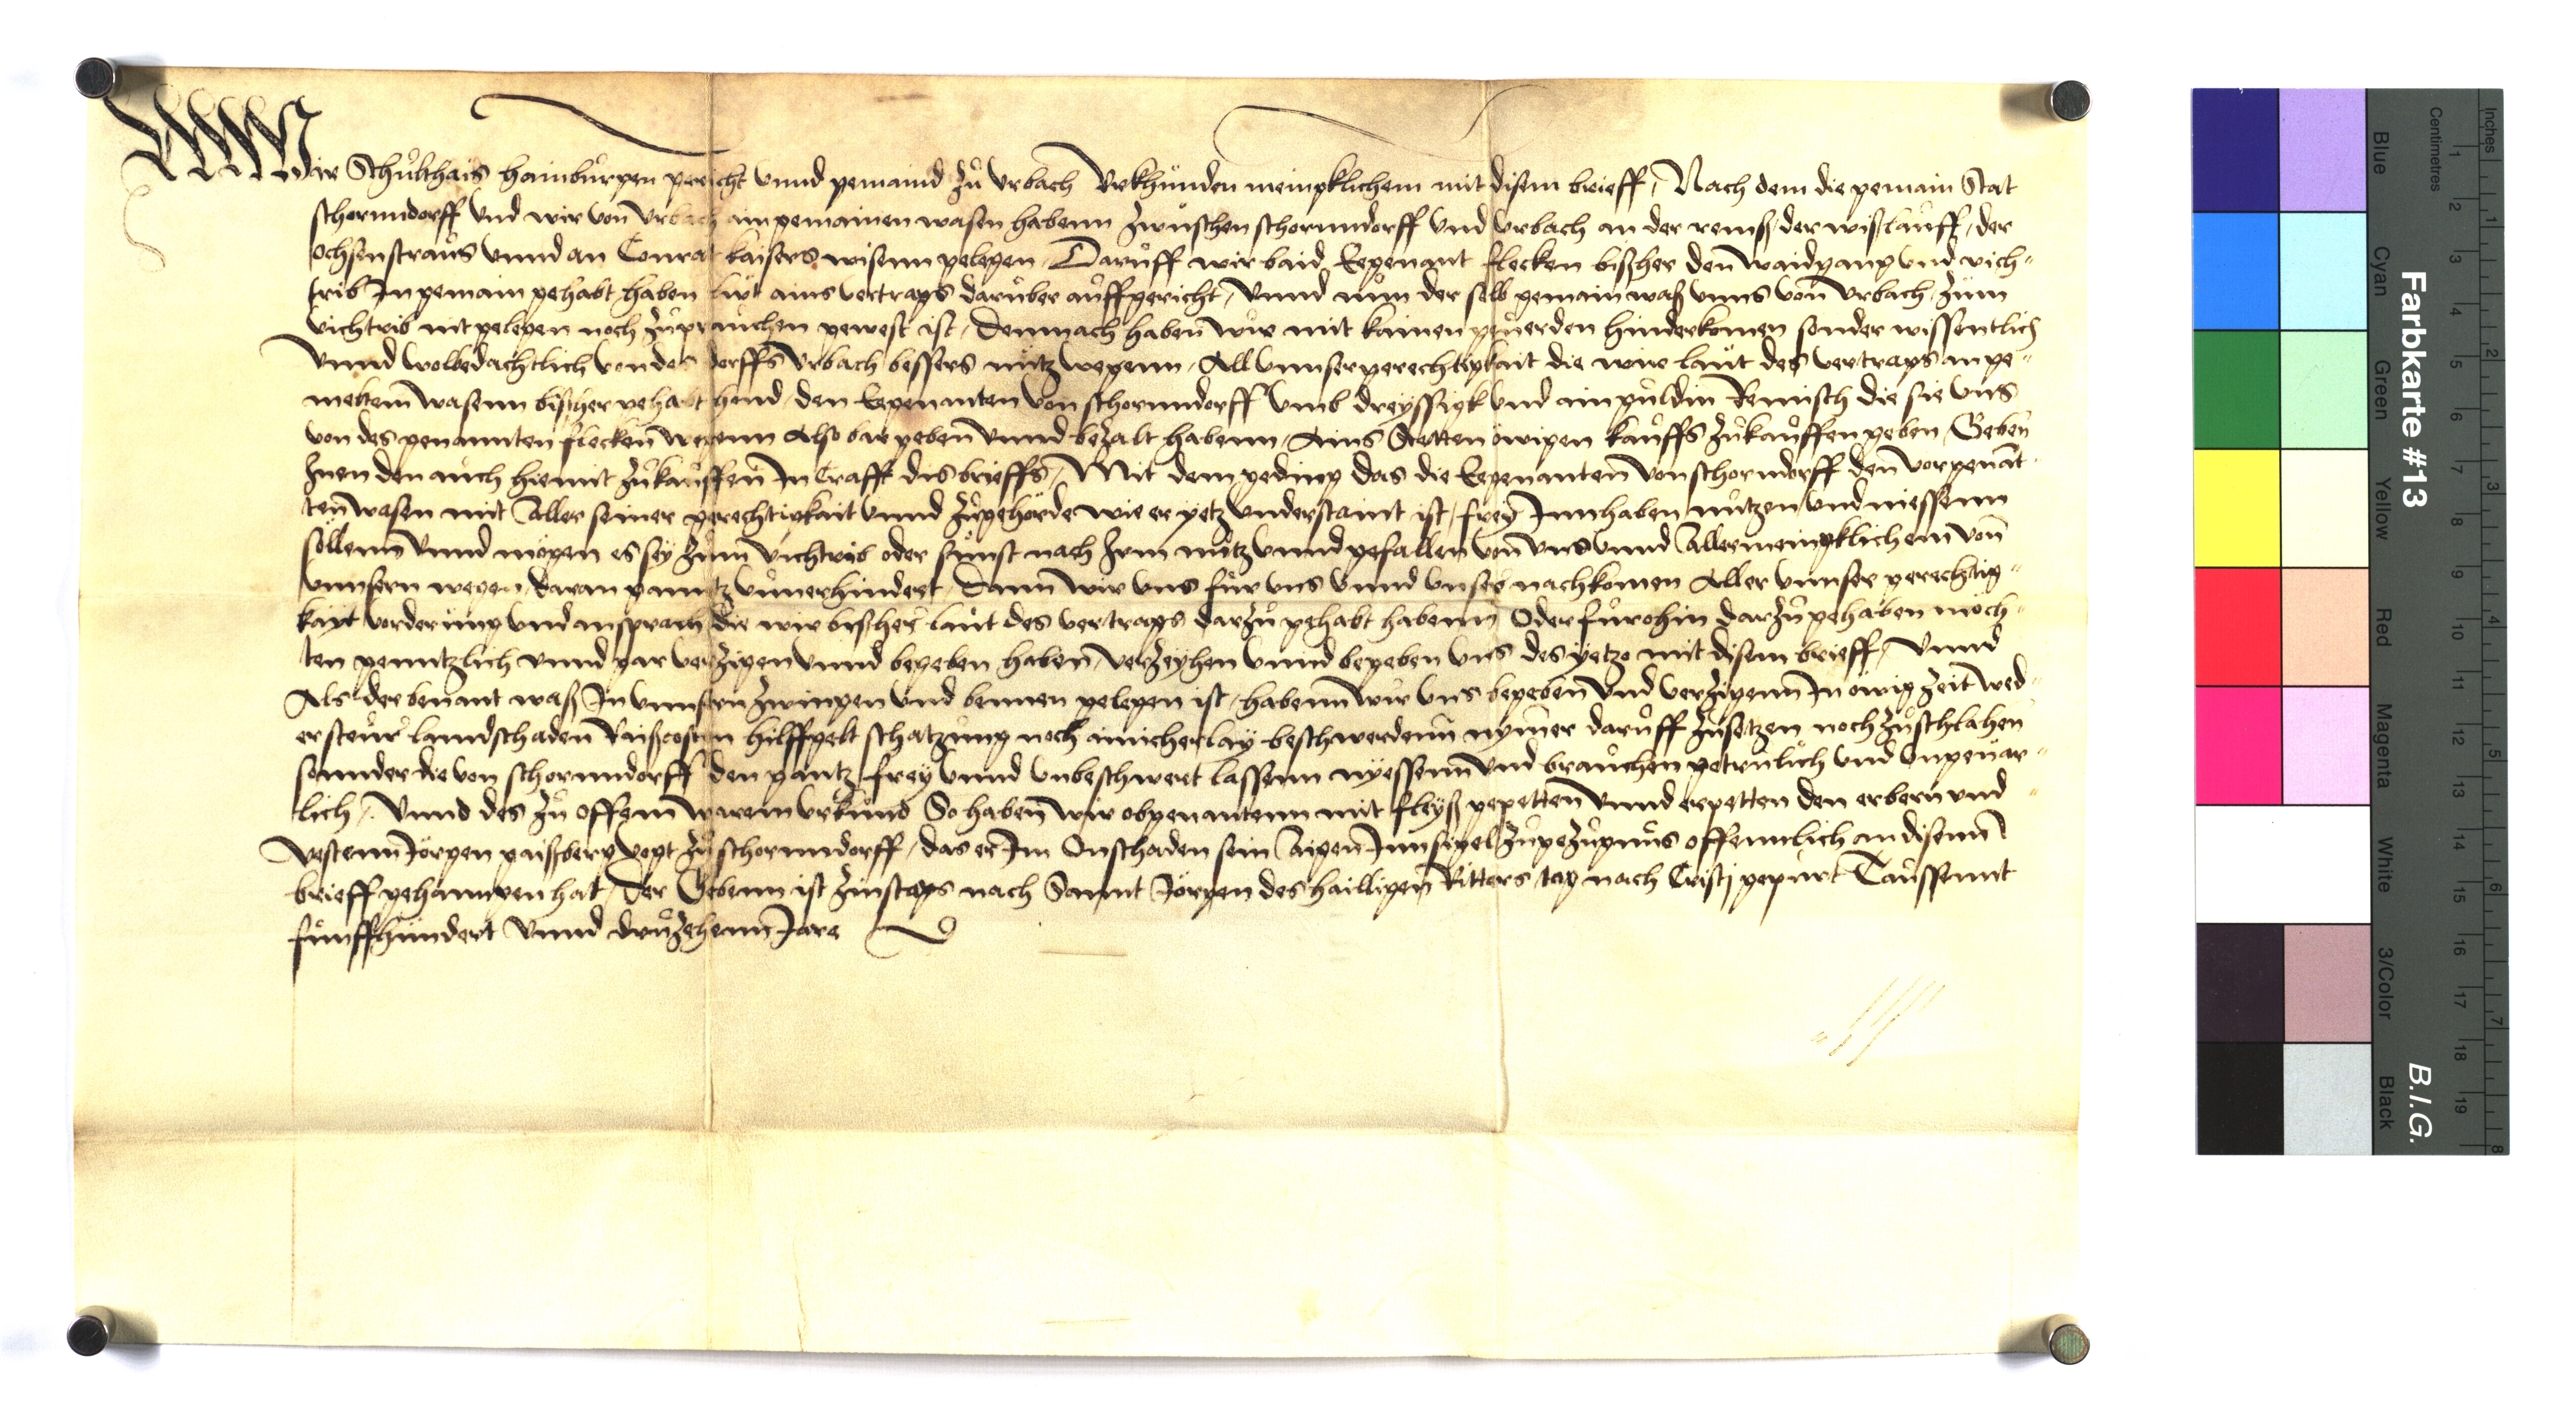 Wir Schulthais haimbürgen gericht vnnd gemaind zů Vrbach Vrkhunden meingklichem mit disem brieff, Nach dem die gemain Stat
schornndorff vnd wir von Vrbach ain gemainen wasen habenn zwüschen schornndorff vnd Vrbach an der remß, der wißlauff, der
ochsenstraus vnnd an Conrat kaisers wisenn gelegen, Daruff wir baid Eegenant flecken bißher den waidgang vnd vich-
trib In gemain gehabt haben lut ains vertrags daruber auffgericht, vnnd nun der selb gemain waß vnns von Vrbach, zum
vichtrib nit gelegen noch zůprauchen gewest ist, Demnach haben wir mit kainen geuerden hinderkomen sonder wissentlich
vnnd wolbedachtlich von des dorffs Vrbach bessers nutz wegenn, All vnnser gerechtigkait die wir laut des vertrags an ge-
meltem wasenn bißher gehabt hend, den Eegenanten von schornndorff vmb dreyssigk vnd ain guldin Reinisch die sie vns
von des genannten flecken wegenn Also bar geben vnnd bezalt habenn, Ains Stetten ewigen kauffs zůkauffen geben, Geben
Inen den auch hiemit zůkauffen In Crafft dis brieffs, Mit dem geding das die Eegenanten von schorndorff den vorgenāt
ten wasen mit Aller seiner gerechtigkait vnnd zůgehörde wie er yetz vnderstaint ist, frey Innhaben nutzen vnd niessenn
söllenn vnnd mögen es sey zum vichtrib oder sunst nach Irm nutz vnnd gefallen von vns vnnd Allermeingklichem von
vnnsern wegen, daran gantz vnuerhindert, Dann wir vns für vns vnnd vnser nachkomen Aller vnnser gerechtig-
kayt vorderung vnd ansprach die wir bißher laut des vertrags darzů gehabt habenn Oder furohin darzů gehaben möch-
ten genntzlich vnnd gar verzigen vnnd begeben haben, verzeyhen vnnd begeben vns des yetzo mit disem brieff, Vnnd
Als der benant waß In vnnsern zwingen vnd bennen gelegen ist, habenn wir vns begeben vnd verzigenn In ewig zeit wed-
er steur landschaden Raißcosten hilffgelt schatzung noch ainicherlay beschwerdenn nymer daruff zůsetzen noch zůschlahen
sonnder die von schornndorff den gantz frey vnnd vnbeschwert lassenn nyessenn vnd brauchen getrulich vnd vngeuar-
lich, Vnnd des zů offem warem vrkund So haben wir obgenantenn mit fleyß gepetten vnnd erpetten den erbern vnd
vestenn Jörgen gaißberg vogt zů schornndorff, das er Im Onschaden sein Aigen Innsigel zů gezugnus offennlich an disenn
brieff gehanngen hat, Der Gebenn ist zinstags nach Sannt Jörgen des hailligen Ritters tag nach Cristi gepurt Taussennt
funffhundert vnnd druzehenn Jare
Farbkarte #13
B.I.G.
Centimetres
Inches
Blue
Cyan
Green
Yellow
Red
Magenta
White
3/Color
Black
1 2 3 4 5 6 7 8 9 10 11 12 13 14 15 16 17 18 19
1 2 3 4 5 6 7 8